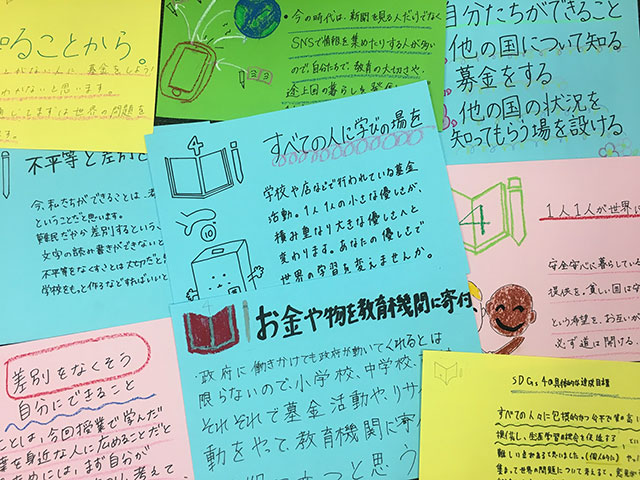 ることから。
に基金をしよう
わかないと思います。
ますは世界の問題を
す。
今の時代は、新聞を見る人だけでなく
SNSで情報を集めたりする人が多い
ので、自分たちで、教育の大切さや、
途上国の暮らしを発信
自分たちができること
他の国について知る
募金をする
他の国の状況を
知ってもらう場を設ける
不平等と差別
今、私たちができることは、
ということだと思います。
難民だから差別するという、
文字の読み書きができないと
不平等をなくすことは大切だと
学校をもっと作るなどすればいい
4
すべての人に学びの場を
学校や店などで行われている募金
活動。1人1人の小さな優しさが、
積み重なり大きな優しさへと
変わります。あなたの優しさで
世界の学習を変えませんか。
10
4
1人1人が世界に
安全安心に暮らしている
提供を。貧しい国は
という希望を、お互いが
必ず道は開ける。
お金や物を教育機関に寄付、
・政府に働きかけても政府が動いてくれるとは
限らないので、小学校、中学校、
それぞれで募金活動や、リサ
動をやって、教育機関に寄
つと思う
差別をなくそう
自分にできること
ことは、今回授業で学んだ
を身近な人に広めることだと
ためには、まず自分が
考えて
SDGs 4の具体的な達成目標
すべての人々に包摂的かつ公平で質の高い
提供し、生涯学習の機会を促進する
難しい点があると思いました。(個人的に)
集まって世界の問題について考えると、意見が